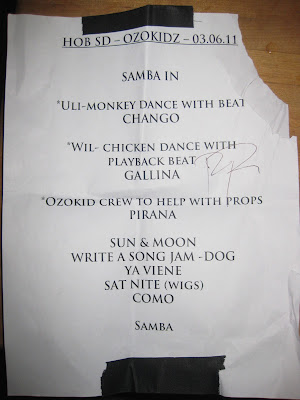 HOB SD – OZOKIDZ – 03.06.11
SAMBA IN
*ULI-MONKEY DANCE WITH BEAT
CHANGO
*WIL- CHICKEN DANCE WITH
PLAYBACK BEAT
GALLINA
*OZOKID CREW TO HELP WITH PROPS
PIRANA
SUN & MOON
WRITE A SONG JAM -DOG
YA VIENE
SAT NITE (WIGS)
COMO
SAMBA